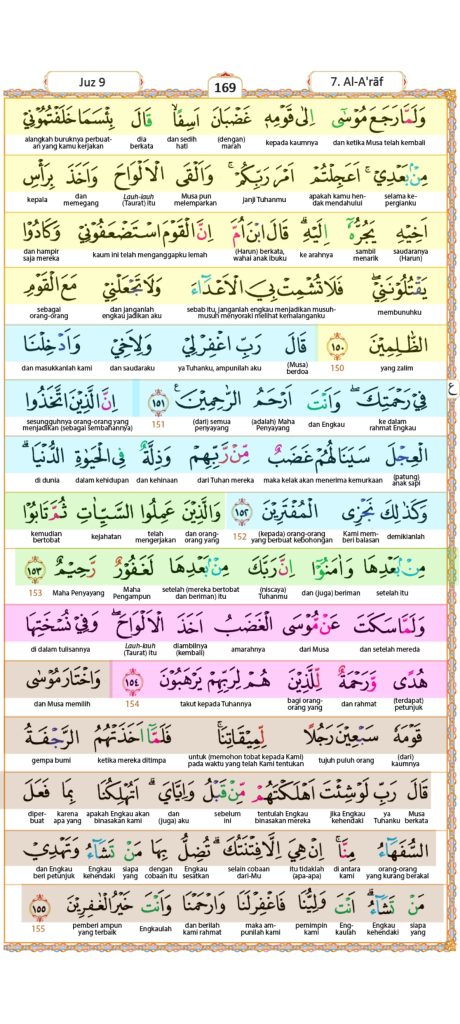 Juz 9
169
7. Al-A'rāf
وَلَمَّا رَجَعَ مُوْسٰٓى اِلٰى قَوْمِهٖ غَضْبَانَ اَسِفًاۙ قَالَ بِئْسَمَا خَلَفْتُمُوْنِيْ
dan ketika Musa telah kembali kepada kaumnya (dengan) marah dan sedih hati dia berkata alangkah buruknya perbuatan yang kamu kerjakan
مِنْۢ بَعْدِيْۚ اَعَجِلْتُمْ اَمْرَ رَبِّكُمْۚ وَاَلْقَى الْاَلْوَاحَ وَاَخَذَ بِرَأْسِ
selama kepergianku apakah kamu hendak mendahului janji Tuhanmu Musa pun melemparkan Lauh-lauh (Taurat) itu dan memegang kepala
اَخِيْهِ يَجُرُّهٗٓ اِلَيْهِۗ قَالَ ابْنَ اُمَّ اِنَّ الْقَوْمَ اسْتَضْعَفُوْنِيْ وَكَادُوْا
saudaranya (Harun) sambil menarik ke arahnya (Harun) berkata, wahai anak ibuku kaum ini telah menganggapku lemah dan hampir saja mereka
يَقْتُلُوْنَنِيْۖ فَلَا تُشْمِتْ بِيَ الْاَعْدَاۤءَ وَلَا تَجْعَلْنِيْ مَعَ الْقَوْمِ
membunuhku sebab itu, janganlah engkau menjadikan musuh-musuh menyoraki melihat kemalanganku dan janganlah engkau jadikan aku sebagai orang-orang
الظّٰلِمِيْنَ ١٥٠ قَالَ رَبِّ اغْفِرْ لِيْ وَلِاَخِيْ وَاَدْخِلْنَا
yang zalim 150 (Musa) berdoa ya Tuhanku, ampunilah aku dan saudaraku dan masukkanlah kami
فِيْ رَحْمَتِكَۖ وَاَنْتَ اَرْحَمُ الرّٰحِمِيْنَ ࣖ ١٥١ اِنَّ الَّذِيْنَ اتَّخَذُوا
ع
ke dalam rahmat Engkau dan Engkau (adalah) Maha Penyayang (dari) semua penyayang 151 sesungguhnya orang-orang yang menjadikan (sebagai sembahannya)
الْعِجْلَ سَيَنَالُهُمْ غَضَبٌ مِّنْ رَّبِّهِمْ وَذِلَّةٌ فِى الْحَيٰوةِ الدُّنْيَاۗ
(patung) anak sapi maka kelak akan menerima kemurkaan dari Tuhan mereka dan kehinaan dalam kehidupan di dunia
وَكَذٰلِكَ نَجْزِى الْمُفْتَرِيْنَ ١٥٢ وَالَّذِيْنَ عَمِلُوا السَّيِّاٰتِ ثُمَّ تَابُوْا
demikianlah Kami memberi balasan (kepada) orang-orang yang berbuat kebohongan 152 dan orang-orang yang telah mengerjakan kejahatan kemudian bertobat
مِنْۢ بَعْدِهَا وَاٰمَنُوْٓا اِنَّ رَبَّكَ مِنْۢ بَعْدِهَا لَغَفُوْرٌ رَّحِيْمٌ ١٥٣
setelah itu dan (juga) beriman (niscaya) Tuhanmu setelah (mereka bertobat dan beriman) itu Maha Pengampun Maha Penyayang 153
وَلَمَّا سَكَتَ عَنْ مُّوْسَى الْغَضَبُ اَخَذَ الْاَلْوَاحَۖ وَفِيْ نُسْخَتِهَا
dan setelah mereda dari Musa amarahnya diambilnya (kembali) Lauh-lauh (Taurat) itu di dalam tulisannya
هُدًى وَّرَحْمَةٌ لِّلَّذِيْنَ هُمْ لِرَبِّهِمْ يَرْهَبُوْنَ ١٥٤ وَاخْتَارَ مُوْسٰى
(terdapat) petunjuk dan rahmat bagi orang-orang yang takut kepada Tuhannya 154 dan Musa memilih
قَوْمَهٗ سَبْعِيْنَ رَجُلًا لِّمِيْقَاتِنَاۚ فَلَمَّآ اَخَذَتْهُمُ الرَّجْفَةُ
(dari) kaumnya tujuh puluh orang untuk (memohon tobat kepada Kami) pada waktu yang telah Kami tentukan ketika mereka ditimpa gempa bumi
قَالَ رَبِّ لَوْ شِئْتَ اَهْلَكْتَهُمْ مِّنْ قَبْلُ وَاِيَّايَۗ اَتُهْلِكُنَا بِمَا فَعَلَ
Musa berkata ya Tuhanku jika Engkau kehendaki tentulah Engkau binasakan mereka sebelum ini dan (juga) aku apakah Engkau akan binasakan kami karena apa yang diperbuat
السُّفَهَاۤءُ مِنَّاۚ اِنْ هِيَ اِلَّا فِتْنَتُكَۗ تُضِلُّ بِهَا مَنْ تَشَاۤءُ وَتَهْدِيْ
orang-orang yang kurang berakal di antara kami itu tidaklah (apa-apa) selain cobaan dari-Mu Engkau sesatkan dengan cobaan itu siapa yang Engkau kehendaki dan Engkau beri petunjuk
مَنْ تَشَاۤءُۗ اَنْتَ وَلِيُّنَا فَاغْفِرْ لَنَا وَارْحَمْنَا وَاَنْتَ خَيْرُ الْغٰفِرِيْنَ ١٥٥
siapa yang Engkau kehendaki Engkaulah pemimpin kami maka ampunilah kami dan berilah kami rahmat Engkaulah pemberi ampun yang terbaik 155